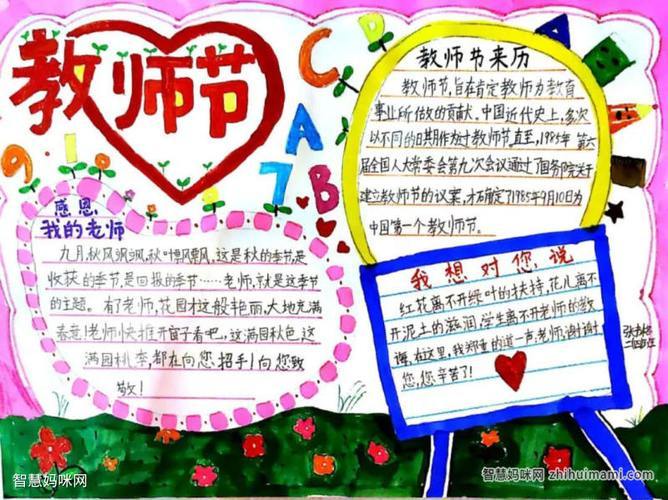 教师节
C
D
A
A
B
9
1
0
7
教师节来历
教师节,旨在肯定教师为教育
事业所做的贡献。中国近代史上,多次
以不同的日期作为过教师节。直至,1985年第六
届全国人大常委会第九次会议通过了国务院关于
建立教师节的议案,才确定了1985年9月10日为
中国第一个教师节。
感恩
我的老师
九月,秋风飒飒,秋叶飘飘,这是秋的季节,是
收获的季节,是回报的季节……老师,就是这季节
的主题。有了老师,花园才这般艳丽,大地充满
春意!老师快推开窗子看吧,这满园秋色,这
满园桃李,都在向您招手!向您致
敬!
我想对您说
红花离不开绿叶的扶持,花儿离不
开泥土的滋润,学生离不开老师的教
诲,在这里,我郑重的道一声:老师,谢谢
您,您辛苦了!
智慧妈咪网
智慧妈咪网 zhihuimami.com